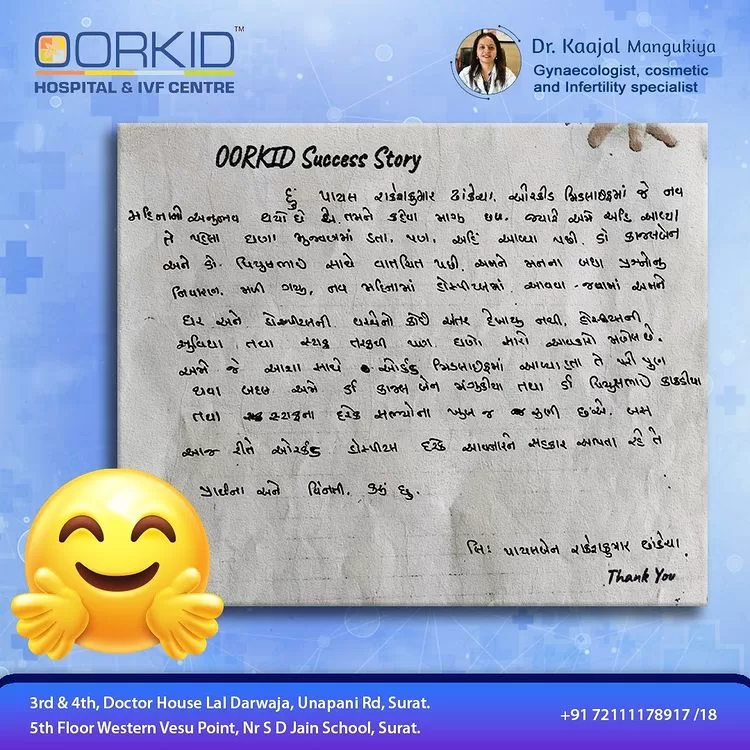 OORKID™
HOSPITAL & IVF CENTRE
Dr. Kaajal Mangukiya
Gynaecologist, cosmetic
and Infertility specialist
OORKID Success Story
હું પાયલ રાકેશકુમાર ઢાંકેચા. ઓરકીડ મેડિલાઈફમાં જે નવ
મહિનાનો અનુભવ થયો છે તે તમને કહેવા માગુ છુ. જ્યારે અમે અહિં આવ્યા
તે પહેલા ઘણા મુંજવણમાં હતા. પણ, અહિં આવ્યા પછી. ડો કાજલબેન
અને ડો. પિયુષભાઈ સાથે વાતચિત પછી. અમને મનના બધા પ્રશ્નોનુ
નિવારણ મળી ગયુ, નવ મહિનામાં હોસ્પીટલમાં આવવા-જવામાં અમને
ઘર અને હોસ્પીટલની વચ્ચેનો કોઈ અંતર દેખાયુ નથી. હોસ્પીટલની
સુવિધા તથા સ્ટાફ તરફથી પણ ઘણો સારો આવકારો મળેલ છે.
અમે જે આશા સાથે ઓર્કિડ મેડિલાઈફમાં આવ્યા હતા તે પરી પુર્ણ
થવા બદલ અમે ડૉ કાજલ બેન મંગુકીયા તથા ડૉ પિયુષભાઈ કાકડીયા
તથા સ્ટાફના દરેક સભ્યોના ખુબ જ ઋણી છીએ. બસ
આજ રીતે ઓરકીડ હોસ્પીટલ દરેક આવનારને સહકાર આપતા રહે તે
પ્રાર્થના અને વિનંતી. કરું છુ.
લિ: પાયલબેન રાકેશકુમાર ઢાંકેચા
Thank You
3rd & 4th, Doctor House Lal Darwaja, Unapani Rd, Surat.
5th Floor Western Vesu Point, Nr S D Jain School, Surat.
+91 72111178917 /18